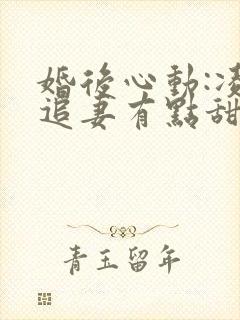 婚後心動:凌
追妻有點甜
青玉留年